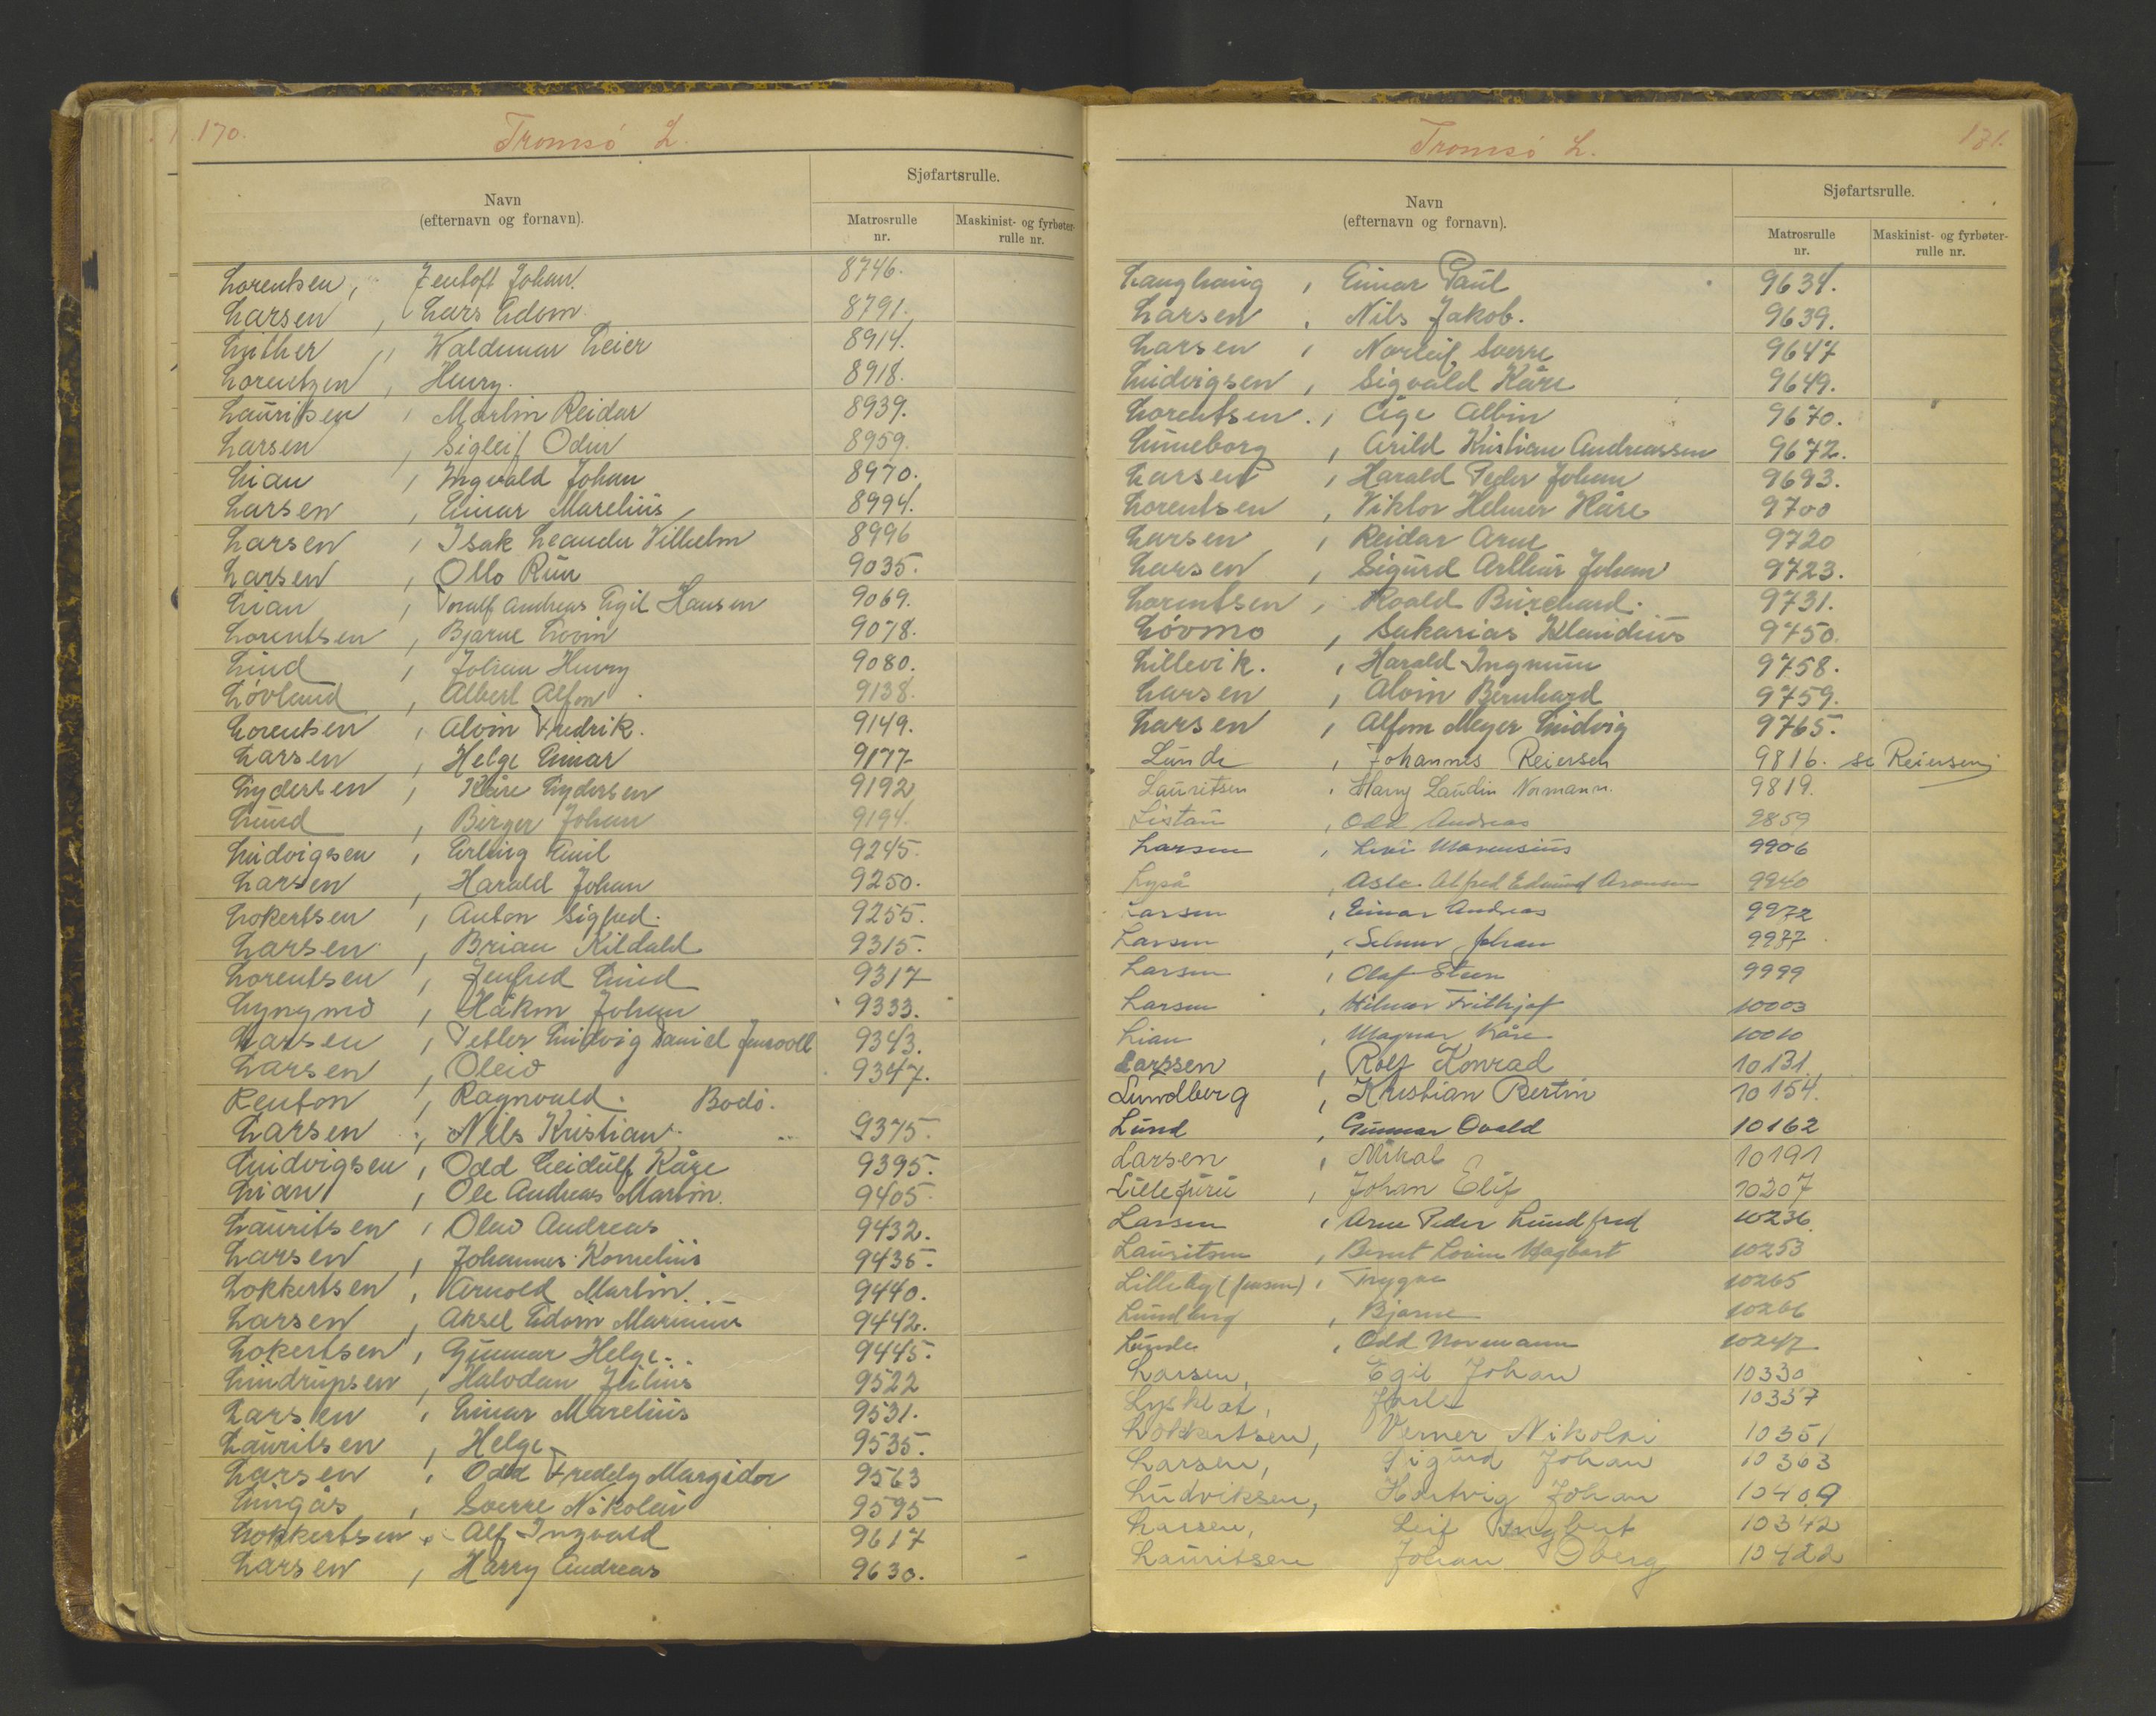 170.
Tromsø L.
Sjøfartsrulle.
Navn
(efternavn og fornavn).
Matrosrulle
nr.
Maskinist- og fyrbøter-
rulle nr.
Lorentsen, Jentoft Johan. 8746.
Larsen, Lars Edom 8791.
Luther, Waldemar Leier 8914.
Lorentzen, Henry. 8918.
Lauritsen, Martin Reidar 8939.
Larsen, Sigleif Odin 8959.
Lian, Ingvald Johan 8970.
Larsen, Einar Marelius 8994.
Larsen, Isak Leander Vilhelm 8996
Larsen, Otto Run 9035.
Lian, Toralf Andreas Egil Hansen 9069.
Lorentsen, Bjarne Edvin 9078.
Lund, Johan Henry 9080.
Løvland, Albert Alfon 9138.
Lorentsen, Alvin Fredrik. 9149.
Larsen, Helge Einar 9177
Lydersen, Kåre Lydersen 9192
Lund, Birger Johan 9194.
Ludvigsen, Erling Emil 9245.
Larsen, Harald Johan 9250.
Lokertsen, Anton Sigfred. 9255.
Larsen, Brian Kildahl 9315.
Lorentsen, Jenfred Lind 9317
Lyngmo, Håkon Johan 9333.
Larsen, Petter Ludvig Daniel Jensvoll 9343.
Larsen, Oleiv 9347.
Renton, Ragnvald. Bodø.
Larsen, Nils Kristian. 9375.
Ludvigsen, Odd Leidulf Kåre 9395.
Lian, Ole Andreas Martin. 9405.
Lauritsen, Olav Andreas 9432.
Larsen, Johannes Kornelius 9435.
Lokkertsen, Arnold Martin. 9440.
Larsen, Aksel Edom Marinius 9442.
Lokertsen, Gunnar Helge. 9445.
Lindrupsen, Halvdan Julius 9522
Larsen, Einar Marelius 9531.
Lauritsen, Helge 9535.
Larsen, Odd Freddy Margidor 9563
Lingås, Sverre Nikolai 9595
Lokkertsen, Alf Ingvald 9617
Larsen, Harry Andreas 9630.
Tromsø L.
181.
Sjøfartsrulle.
Navn
(efternavn og fornavn).
Matrosrulle
nr.
Maskinist- og fyrbøter-
rulle nr.
Langhaug, Einar Paul 9634.
Larsen, Nils Jakob. 9639.
Larsen, Norleif Sverre 9647
Ludvigsen, Sigvald Kåre 9649.
Lorentsen, Åge Albin 9670.
Luneborg, Arild Kristian Andreassen 9672.
Larsen, Harald Peder Johan 9693.
Lorentsen, Viktor Helmer Kåre 9700
Larsen, Reidar Arne 9720
Larsen, Sigurd Arthur Johan 9723.
Lorentsen, Roald Burchard. 9731.
Løvmo, Sakarias Klaudius 9750.
Lillevik., Harald Ingmun 9758.
Larsen, Alvin Bernhard 9759.
Larsen, Alfon Meyer Ludvig 9765.
Lunde, Johannes Reiersen 9816. se Reiersen
Lauritsen, Harry Laudin Normann. 9819.
Listau, Odd Andreas 9859
Larsen, Levi Marensius 9906
Lyså, Asle Alfred Edmund Aronsen 9940
Larsen, Einar Andreas 9972
Larsen, Selmer Johan 9977
Larsen, Olaf Steen 9999
Larsen, Hilmar Frithjof 10003
Lian, Magnar Kåre 10010
Larssen, Rolf Konrad 10131.
Lundberg, Kristian Bertin 10154.
Lund, Gunnar Ovald 10162
Larsen, Mikal 10191
Lillefuru, Johan Elif 10207
Larsen, Arne Peder Lundfred 10236.
Lauritsen, Bernt Hagbart 10253
Lilleby (Jensen), Trygve 10265
Lundberg, Bjarne 10266
Lunde, Odd Normann 10247
Larsen, Egil Johan 10330
Lysklæt, Jarle 10357
Lokkertsen, Verner Nikolai 10351
Larsen, Sigurd Johan 10363
Ludviksen, Hartvig Johan 10409
Larsen, Leif Ingbert 10342
Lauritsen Johan Oberg 10422